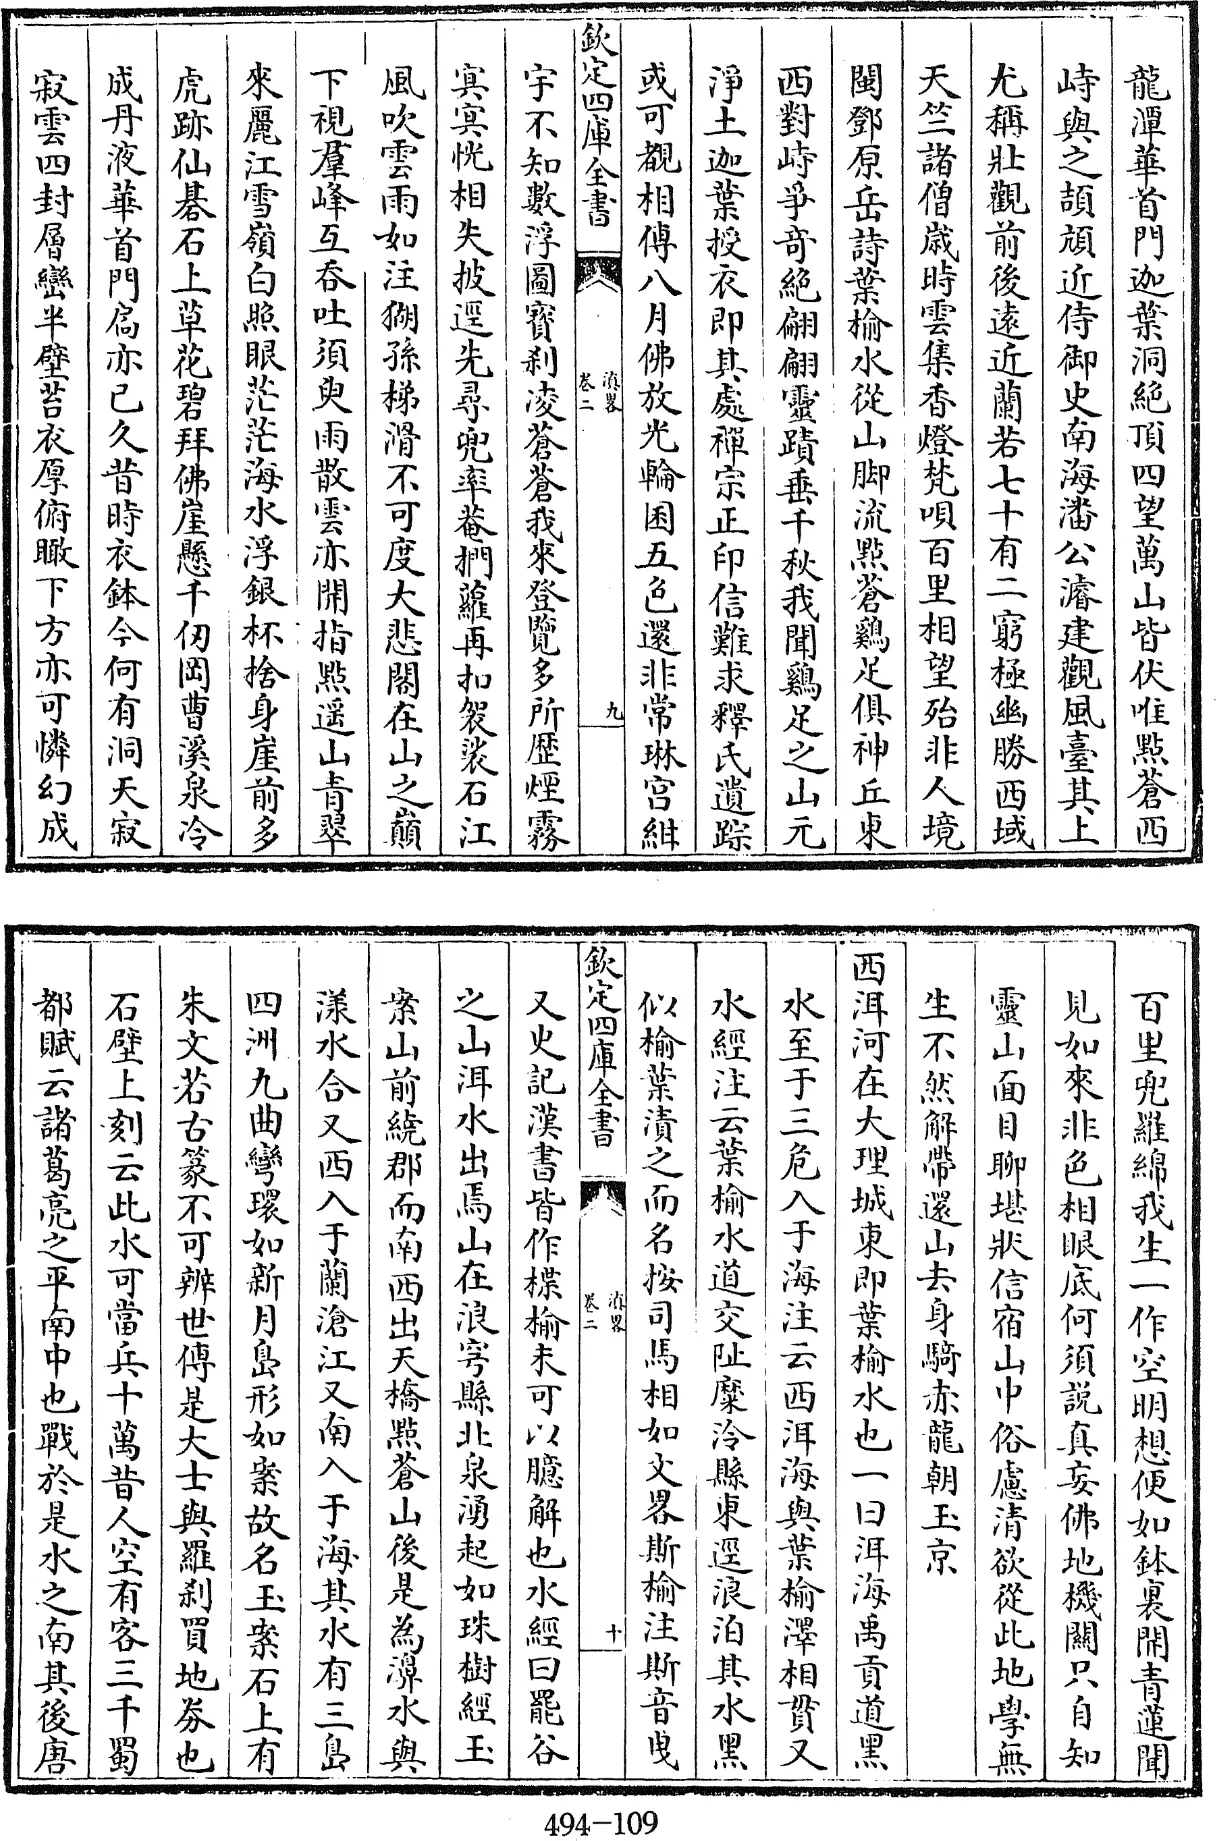 龍潭華首門迦葉洞絶頂四望萬山皆伏唯點蒼西
峙與之頡頏近侍御史南海潘公濬建觀風臺其上
尤稱壯觀前後遠近蘭若七十有二窮極幽勝西域
天竺諸僧歳時雲集香燈梵唄百里相望殆非人境
閩鄧原岳詩葉榆水從山脚流點蒼鷄足俱神丘東
西對峙爭竒絶翩翩靈蹟垂千秋我聞鷄足之山元
淨土迦葉授衣即其處禪宗正印信難求釋氏遺踪
或可覩相傳八月佛放光輪囷五色還非常琳宫紺
欽定四庫全書
滇畧
卷二
九
宇不知數浮圖寳刹凌蒼蒼我來登覽多所歴煙霧
寘寘恍相失披逕先尋兜率菴捫蘿再扣袈裟石江
風吹雲雨如注猢孫梯滑不可度大悲閣在山之巔
下視羣峰互吞吐須臾雨散雲亦開指點遥山青翠
來麗江雪嶺白照眼茫茫海水浮銀杯捨身崖前多
虎跡仙碁石上草花碧拜佛崖懸千仞岡曹溪泉冷
成丹液華首門扄亦已久昔時衣鉢今何有洞天寂
寂雲四封層巒半壁苔衣厚俯瞰下方亦可憐幻成
百里兜羅綿我生一作空明想便如鉢裏開青蓮聞
見如來非色相眼底何須説真妄佛地機關只自知
靈山面目聊堪狀信宿山中俗慮清欲從此地學無
生不然解帶還山去身騎赤龍朝玉京
西洱河在大理城東即葉榆水也一曰洱海禹貢道黑
水至于三危入于海注云西洱海與葉榆澤相貫又
水經注云葉榆水道交阯麋泠縣東逕浪泊其水黑
似榆葉漬之而名按司馬相如文畧斯榆注斯音曳
欽定四庫全書
滇畧
卷二
十
又史記漢書皆作楪榆未可以臆解也水經曰罷谷
之山洱水出焉山在浪穹縣北泉湧起如珠樹經玉
案山前繞郡而南西出天橋點蒼山後是為濞水與
漾水合又西入于蘭滄江又南入于海其水有三島
四洲九曲彎環如新月島形如案故名玉案石上有
朱文若古篆不可辨世傳是大士與羅刹買地券也
石壁上刻云此水可當兵十萬昔人空有客三千蜀
都賦云諸葛亮之平南中也戰於是水之南其後唐
494-109